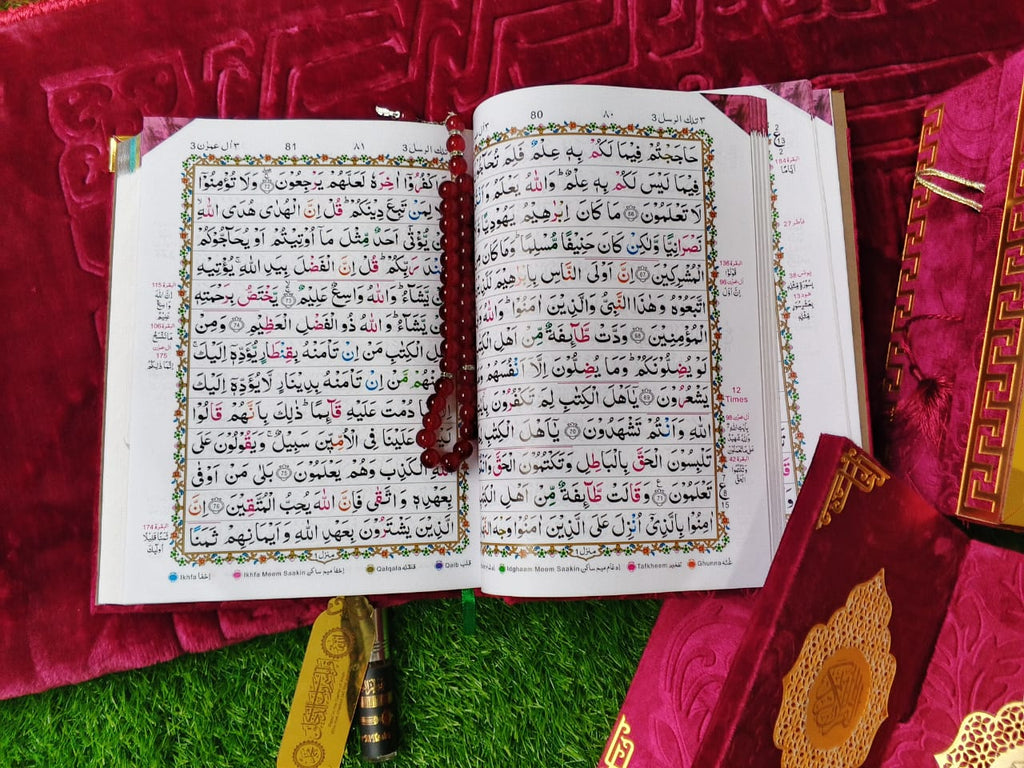 ٣ تلك الرسل 3 ٨٠ 80
حَاجَجْتُمْ فِيْمَا لَكُمْ بِهٖ عِلْمٌ فَلِمَ
فِيْمَا لَيْسَ لَكُمْ بِهٖ عِلْمٌؕ وَاللّٰهُ يَعْلَمُ
لَا تَعْلَمُوْنَ 66 مَا كَانَ اِبْرٰهِيْمُ يَهُوْدِيًّا
نَصْرَانِيًّا وَّلٰكِنْ كَانَ حَنِيْفًا مُّسْلِمًاؕ وَمَا كَانَ
الْمُشْرِكِيْنَ 67 اِنَّ اَوْلَى النَّاسِ بِاِبْرٰهِيْمَ
اتَّبَعُوْهُ وَهٰذَا النَّبِيُّ وَالَّذِيْنَ اٰمَنُوْاؕ وَاللّٰهُ
الْمُؤْمِنِيْنَ 68 وَدَّتْ طَّآئِفَةٌ مِّنْ اَهْلِ
لَوْ يُضِلُّوْنَكُمْؕ وَمَا يُضِلُّوْنَ اِلَّاۤ اَنْفُسَهُمْ
يَشْعُرُوْنَ 69 يٰۤاَهْلَ الْكِتٰبِ لِمَ تَكْفُرُوْنَ
اللّٰهِ وَاَنْتُمْ تَشْهَدُوْنَ 70 يٰۤاَهْلَ الْكِتٰبِ
تَلْبِسُوْنَ الْحَقَّ بِالْبَاطِلِ وَتَكْتُمُوْنَ الْحَقَّ
تَعْلَمُوْنَ 71 وَقَالَتْ طَّآئِفَةٌ مِّنْ اَهْلِ
اٰمِنُوْا بِالَّذِيْۤ اُنْزِلَ عَلَى الَّذِيْنَ اٰمَنُوْا وَجْهَ
منزل 1
Idgheam Meem Saakin ادغام میم ساکن Tafkheem تفخیم Ghunna غنّہ
12
Times
٣ اٰل عمرٰن 3 81 ٨١ تلك الرسل 3
وَاكْفُرُوْۤا اٰخِرَهٗ لَعَلَّهُمْ يَرْجِعُوْنَ 72 وَلَا تُؤْمِنُوْۤا
لِمَنْ تَبِعَ دِيْنَكُمْؕ قُلْ اِنَّ الْهُدٰى هُدَى اللّٰهِ
يُّؤْتٰىۤ اَحَدٌ مِّثْلَ مَاۤ اُوْتِيْتُمْ اَوْ يُحَآجُّوْكُمْ
عِنْدَ رَبِّكُمْؕ قُلْ اِنَّ الْفَضْلَ بِيَدِ اللّٰهِۚ يُؤْتِيْهِ
يَّشَآءُؕ وَاللّٰهُ وَاسِعٌ عَلِيْمٌ 73 يَّخْتَصُّ بِرَحْمَتِهٖ
يَّشَآءُؕ وَاللّٰهُ ذُو الْفَضْلِ الْعَظِيْمِ 74 وَمِنْ
الْكِتٰبِ مَنْ اِنْ تَاْمَنْهُ بِقِنْطَارٍ يُّؤَدِّهٖۤ اِلَيْكَ
مَّنْ اِنْ تَاْمَنْهُ بِدِيْنَارٍ لَّا يُؤَدِّهٖۤ اِلَيْكَ
دُمْتَ عَلَيْهِ قَآئِمًاؕ ذٰلِكَ بِاَنَّهُمْ قَالُوْا
عَلَيْنَا فِى الْاُمِّيّٖنَ سَبِيْلٌۚ وَيَقُوْلُوْنَ عَلَى
الْكَذِبَ وَهُمْ يَعْلَمُوْنَ 75 بَلٰى مَنْ اَوْفٰى
بِعَهْدِهٖ وَاتَّقٰى فَاِنَّ اللّٰهَ يُحِبُّ الْمُتَّقِيْنَ 76 اِنَّ
الَّذِيْنَ يَشْتَرُوْنَ بِعَهْدِ اللّٰهِ وَاَيْمَانِهِمْ ثَمَنًا
منزل 1
Ikhfa إخفا Ikhfa Meem Saakin إخفا میم ساکن Qalqala قلقلہ Qalb قلب